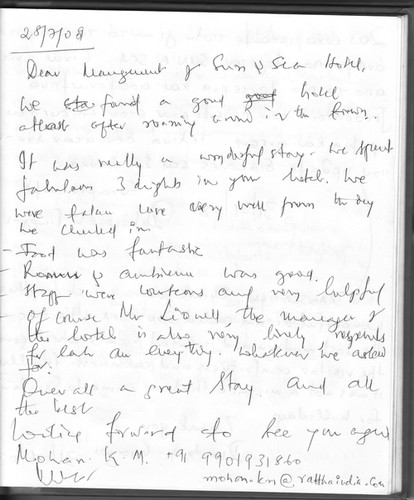 28/7/08
Dear Management of Sun & Sea Hotel,
We found a good hotel
atleast after roaming around in the town.
It was really a wonderful stay. We spent
fabulous 3 nights in your hotel. We
were taken care very well from the day
we checked in.
- Food was fantastic
- Rooms & ambience was good.
Staff were courteous and very helpful
Of course Mr Lionell, the manager of
the hotel is also very lively
everything. Whatever we asked
for.
Over all a great Stay and all
the best
forward to see you again
Mohan K M. +91 9901931860
mohan.km@ratthaindia.com